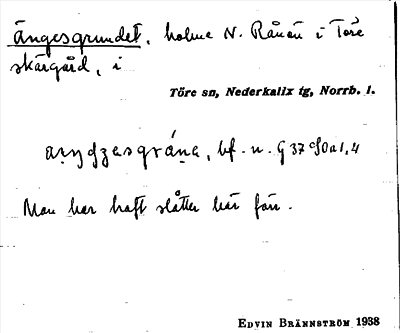 ängesgrundet, holme N. Rånön i Töre
skärgård, i
Töre sn, Nederkalix tg, Norrb. l.
bf. n. G 37
Man har haft slåtter här förr.
EDVIN BRÄNNSTRÖM 1938